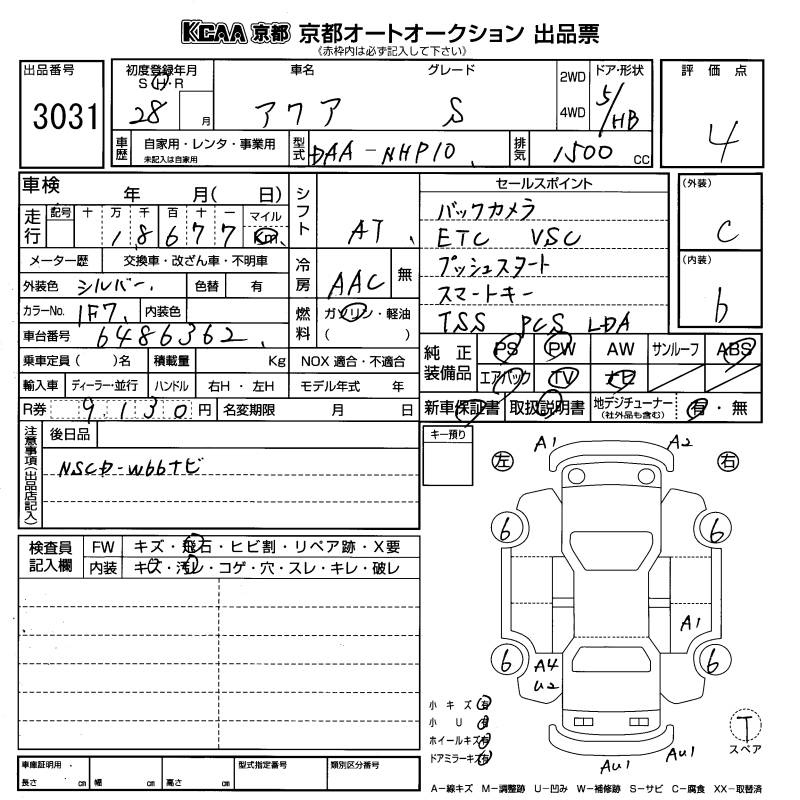 KCAA 京都 京都オートオークション 出品票
(赤枠内は必ず記入して下さい)
出品番号 3031
初度登録年月 S・H・R 28 月
車名 アクア
グレード S
2WD 4WD
ドア・形状 5/HB
評価点 4
車歴 自家用・レンタ・事業用
未記入は自家用
型式 DAA-NHP10
排気 1500 CC
車検 年 月( 日)
シフト AT
走行 記号 十 万 千 百 十 一 マイル
1 8 6 7 7 Km
メーター歴 交換車・改ざん車・不明車
冷房 AAC 無
外装色 シルバー 色替 有
カラーNo. 1F7 内装色
燃料 ガソリン・軽油
( )
車台番号 6486362
乗車定員( )名 積載量 Kg NOX 適合・不適合
輸入車 ディーラー・並行 ハンドル 右H・左H モデル年式 年
R券 9,130円 名変期限 月 日
セールスポイント
バックカメラ
ETC VSC
プッシュスタート
スマートキー
TSS PCS LDA
(外装) C
(内装) b
純正装備品 PS PW AW サンルーフ ABS
エアバック TV ナビ
新車保証書 取扱説明書 地デジチューナー (社外品も含む) 有・無
注意事項(出品店記入) 後日品
NSCD-W66ナビ
キー預り
検査員記入欄 FW キズ・飛石・ヒビ割・リペア跡・X要
内装 キズ・汚レ・コゲ・穴・スレ・キレ・破レ
A1 A2
左 右
6 6
A1
6 6
A4
U2
小キズ 有
小U 有
ホイールキズ 有
ドアミラーキズ 有
AU1 AU1
T
スペア
車庫証明用
長さ cm 幅 cm 高さ cm
型式指定番号 類別区分番号
A-線キズ M-調整跡 U-凹み W-補修跡 S-サビ C-腐食 XX-取替済